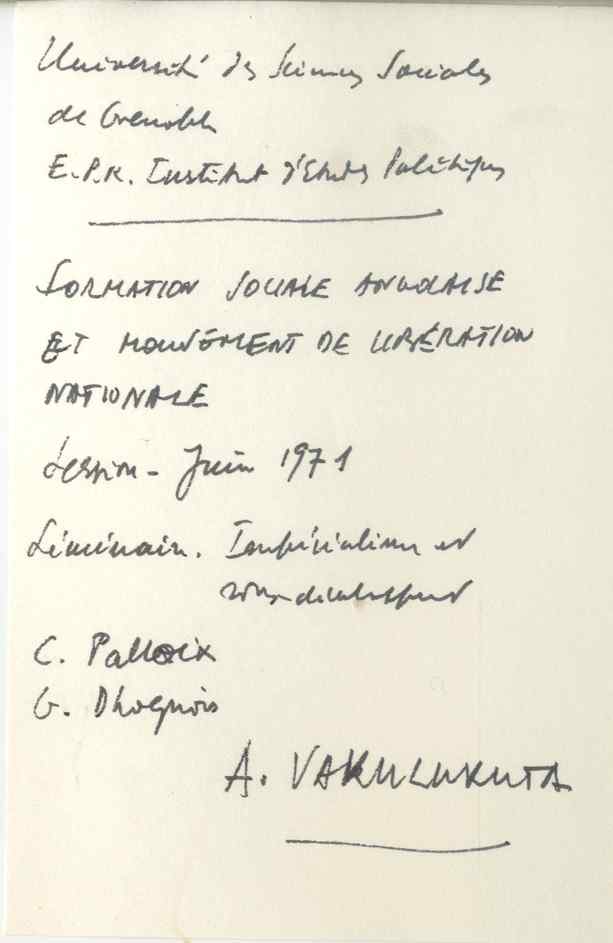 Université des Sciences Sociales
de Grenoble
E.P.R. Institut d'Etudes Politiques
FORMATION SOCIALE ANGOLAISE
ET MOUVÉMENT DE LIBÉRATION
NATIONALE
Session - Juin 1971
Séminaire. Impérialisme et
sous-développement
C. Palloix
G. Dhoquois
A. VAKULUKUTA